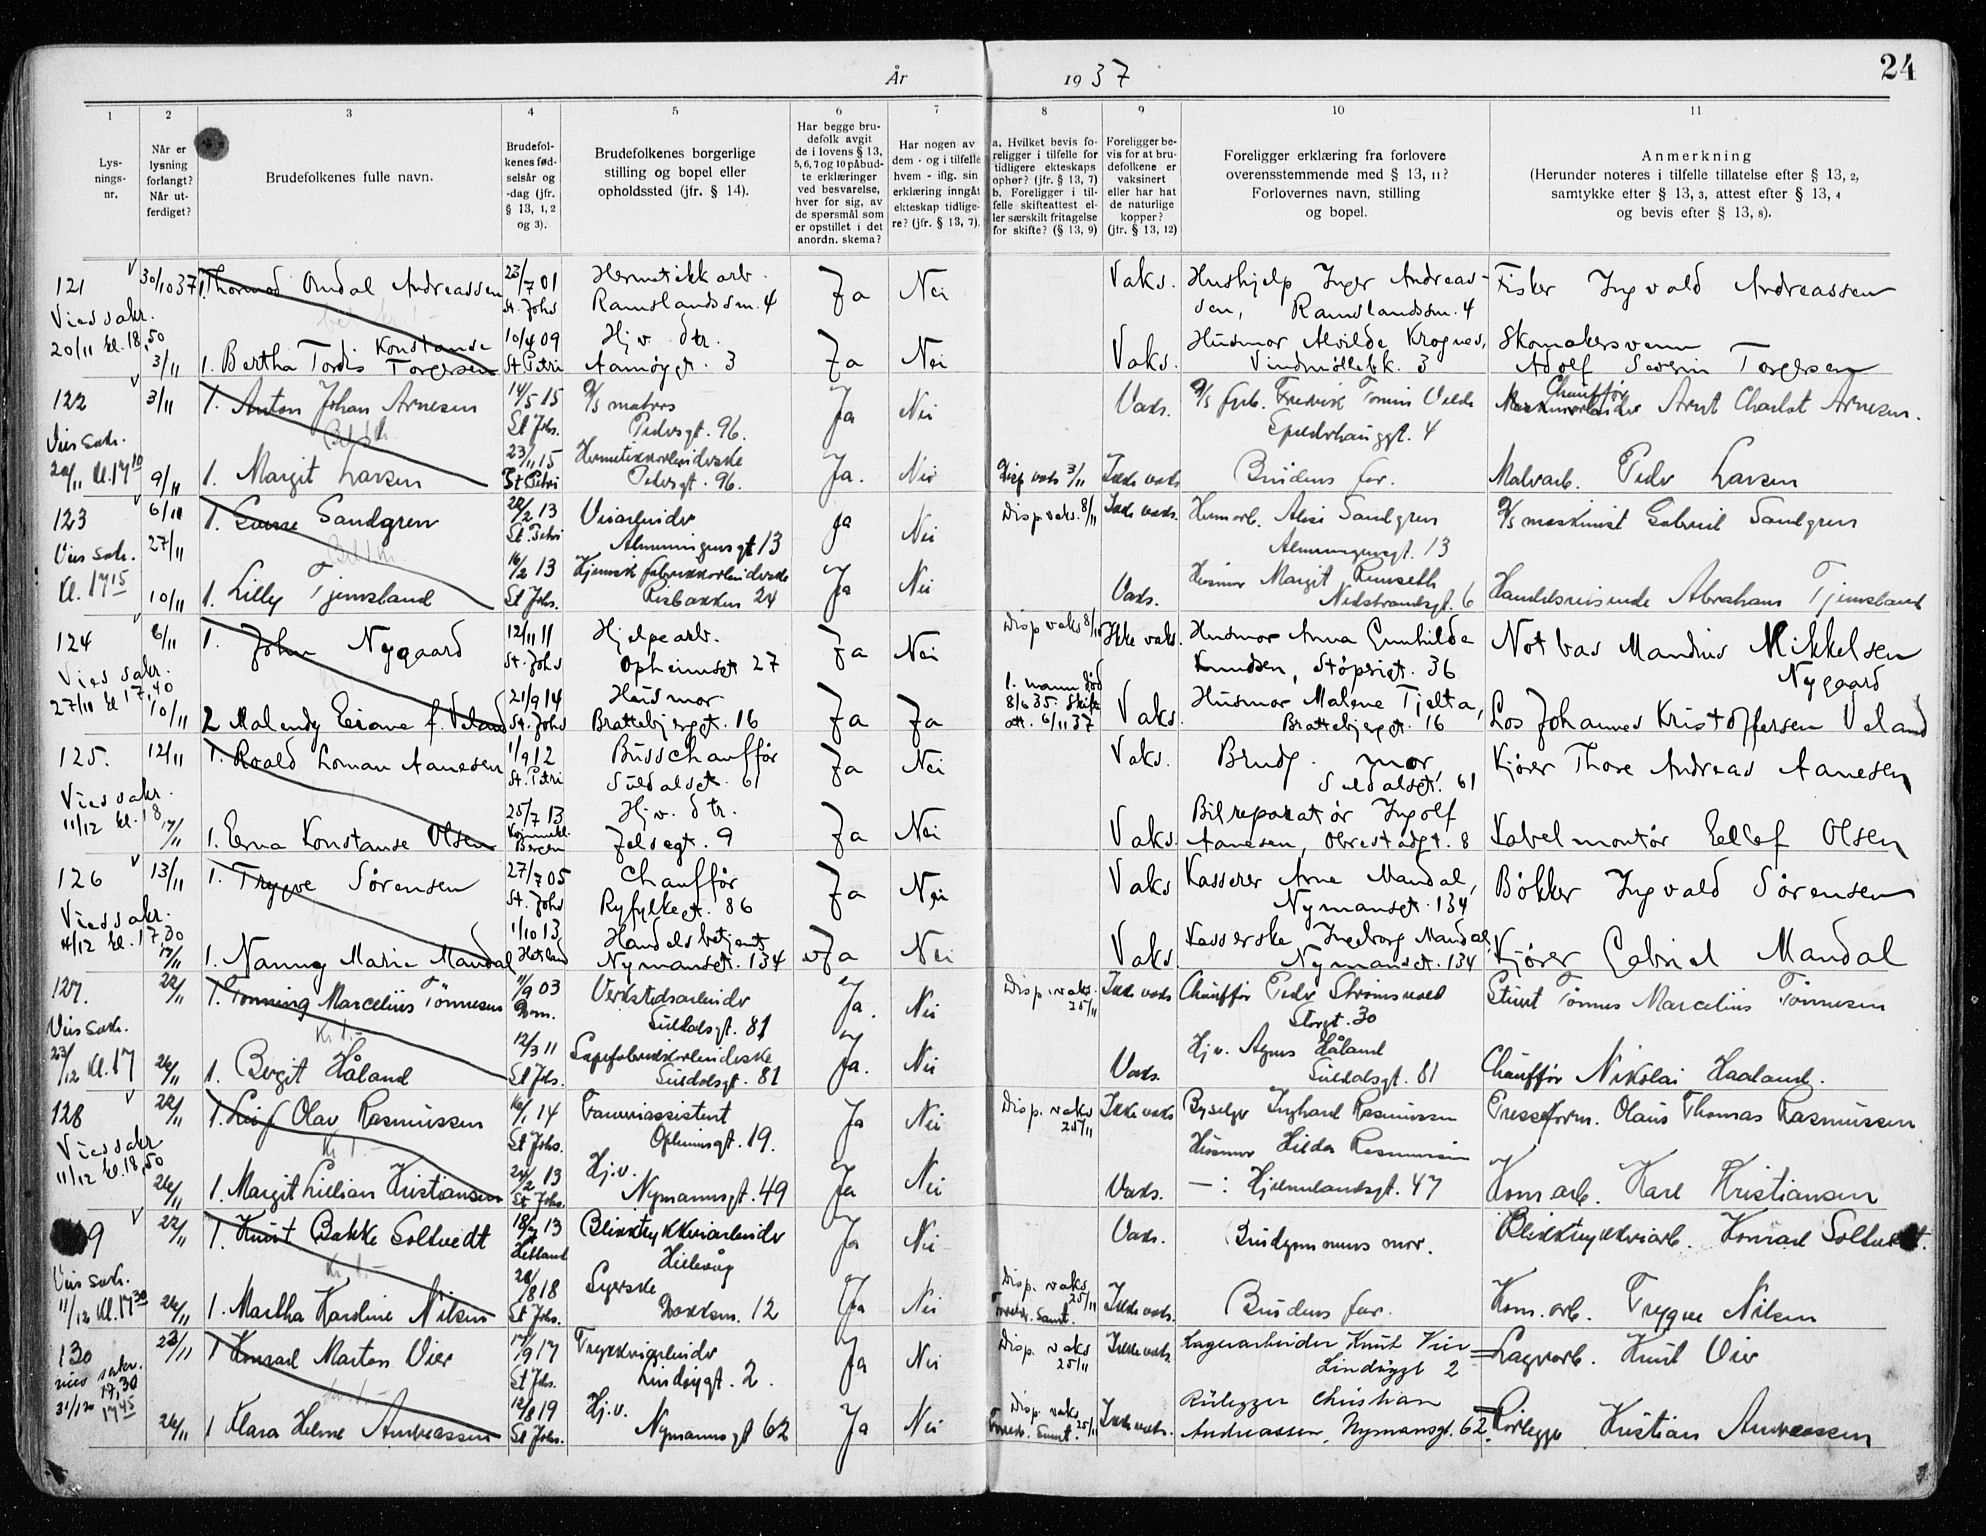 År 1937
24
1 2 3 4 5 6 7 8 9 10 11
Lys-
nings-
nr.
Når er
lysning
forlangt?
Når ut-
ferdiget?
Brudefolkenes fulle navn.
Brudefol-
kenes fød-
selsår og
-dag (jfr.
§ 13, 1, 2
og 3).
Brudefolkenes borgerlige
stilling og bopel eller
opholdssted (jfr. § 14).
Har begge bru-
defolk avgit
de i lovens § 13,
5, 6, 7 og 10 påbud-
te erklæringer
ved besvarelse,
hver for sig, av
de spørsmål som
er opstillet i det
anordn. skema?
Har nogen av
dem - og i tilfelle
hvem - iflg. sin
erklæring inngått
ekteskap tidlige-
re? (jfr. § 13, 7).
a. Hvilket bevis fo-
religger i tilfelle for
tidligere ekteskaps
ophør? (jfr. § 13, 7)
b. Foreligger i til-
felle skifteattest el-
ler særskilt fritagelse
for skifte? (§ 13, 9)
Foreligger be-
vis for at bru-
defolkene er
vaksinert
eller har hat
de naturlige
kopper?
(jfr. § 13, 12)
Foreligger erklæring fra forlovere
overensstemmende med § 13, 11?
Forlovernes navn, stilling
og bopel.
Anmerkning
(Herunder noteres i tilfelle tillatelse efter § 13, 2,
samtykke efter § 13, 3, attest efter § 13, 4
og bevis efter § 13, 8).
121 30/10 37 1. Thormod Omdal Andreassen 23/7 01 Hermetikkarb. Ja Nei Vaks. Hushjelp Inger Andreas- Fisker Ingvald Andreassen
Vies sakr. St. Johs Ramslandssm. 4 sen, Ramslandssm. 4
20/11 kl. 18,50 Konstanse 10/4 09 Hjv. dtr. Husmor Alvilde Krognes, Skomakersvenn
3/11 1. Bertha Tordis Torgersen St Petri Aamøygt. 3 Ja Nei Vaks. Vindmøllebk. 3 Adolf Severin Torgersen
122 3/11 1. Anton Johan Arnesen 14/5 15 D/S matros Ja Nei Vaks. D/S fyrb. Fredrik Tonning Velde Chauffør Arnt Charlot Arnesen.
Vies sak. St Johs. Pedersgt. 96. 4
20/11 kl. 17 10 23/11 15 Hermetikkarbeiderske
9/11 1. Margit Larsen St Petri Pedersgt. 96. Ja. Nei Disp vaks 3/11 Ikke vaks Brudens far. Malerarb. Peder Larsen
123 6/11 1. Sverre Sandgren 22/2 13 Veiarbeider Ja Nei Disp vaks. 8/11 Ikke vaks. Hermarb. Sandgren D/S maskinist Gabriel Sandgren
Vies sak. 27/11 St. Petri Almenningensgt 13 Almenningensgt. 13
Kl. 17 15 16/2 13 Kjemisk fabrikkarbeiderske Husmor Margit
10/11 1. Lilly Tjemsland St Johs. Risbakken 24 Ja Nei Vaks. Nedstrandsgt. 6 Handelsreisende Abraham Tjemsland
124 6/11 1. John Nygaard 12/11 11 Hjelpearb. Ja Nei Disp vaks 8/11 Ikke vaks. Husmor Anna Gunhilde Notbas Mandius Mikkelsen
Vies sakr. St. Johs Opheimsgt 27 Knudsen, Støperigt. 36 Nygaard
27/11 kl 17,40 21/9 14 Husmor 1. mann død 8/6 35. Skifte Husmor Malene Tjelta,
10/11 2 Malendy Eriane f. Veland St. Johs Brattebjergt. 16 Ja Ja att. 6/11 37 Vaks. Brattebjergt. 16 Los Johannes Kristoffersen Veland
125. 12/11 1. Roald Loman Aanesen 1/9 12 Busschauffør Ja Nei Vaks. Brudg. mor Kjører Thore Andreas Aanesen
Vies sakr. St. Petri Suldalsgt. 61 Suldalsgt. 61
11/12 kl. 18 25/7 13 Hjv. dtr. Bilreparatør Ingolf
17/11 1. Erna Konstanse Olsen Bergen Jelsegt. 9 Ja Nei Vaks. Aanesen, Obrestadgt. 8 Kabelmontør Ellef Olsen
126 13/11 1. Trygve Sørensen 27/7 05 Chauffør Ja Nei Vaks Kasserer Arne Mandal, Bøkker Ingvald Sørensen
Vies sakr. St. Johs Ryfylkegt. 86 Nymansgt. 134
4/12 kl. 17,30 1/10 13 Handelsbetjent Kasserske Ingeborg Mandal
17/11 1. Nanny Marie Mandal Hetland Nymansgt. 134 Ja Nei Vaks Nymansgt. 134 Kjører Gabriel Mandal
127. 22/11 1. Tønning Marcelius Tønnesen 11/9 03 Verkstedsarbeider Ja. Nei Disp. vaks. 25/11 Ikke vaks Chauffør Peder Strømsvold Stuert Tønnes Marcelius Tønnesen
Vies sak. Dom. Suldalsgt. 81 Storgt. 30
23/12 kl. 17 Kr. 1.- 12/3 11 Såpefabrikkarbeiderske Hjv. Agnes Håland
26/11 1. Bergit Håland St Johs. Suldalsgt. 81 Ja. Nei Vaks. Suldalsgt. 81 Chauffør Nikolai Haaland.
128 22/11 1. Leif Olav Rasmussen 16/1 14 Ja Nei Disp. vaks 25/11 Ikke vaks Byselger Rasmussen Presseform. Olaus Thomas Rasmussen
Vies sakr Kr 1.- St Johs. Opheimsgt. 19. Husmor Hilda Rasmussen
11/12 kl. 18,50 24/2 13 Hj.v.
26/11 1. Margit Lillian Kristiansen St Johs. Nymannsgt. 49 Ja Nei Vaks. —: Hjelmelandsgt. 47 Kom arb. Karl Kristiansen
9 22/11 1. Knut Bakke Soltvedt 18/7 13 Blikktrykkeriarbeider Ja Nei Vaks. Brudgommens mor. Blikktrykkeriarb. Konrad Soltvedt.
Vies sak. Kr 1.- Hetland Hillevåg
11/12 kl. 17 30 8 18 Syerske Disp. vaks 25/11
26/11 1. Martha Karoline Nilsen St Johs. Bakkesm. 12 Ja Nei Foreldr. Samt. Ikke vaks. Brudens far. Kom. arb. Trygve Nilsen
130 23/11 1 Konrad Marton Vier 17/9 17 Trykkeriarbeider Ja Nei Disp. vaks 25/11 Ikke vaks. Lagerarbeider Knut Vier Lagerarb. Knut Vier
vies sakr. 17,30 St Johs. Lindøygt. 2. Lindøygt 2
31/12 17 45 12/8 19 Hj.v. Disp. vaks 25/11 Rørlegger Christian
26/11 1 Klara Helene Andreassen St Johs. Nymannsgt 62 Ja Nei Foreldr. Samt. Ikke vaks. Andreassen, Nymansgt. 62. Rørlegger Kristian Andreassen